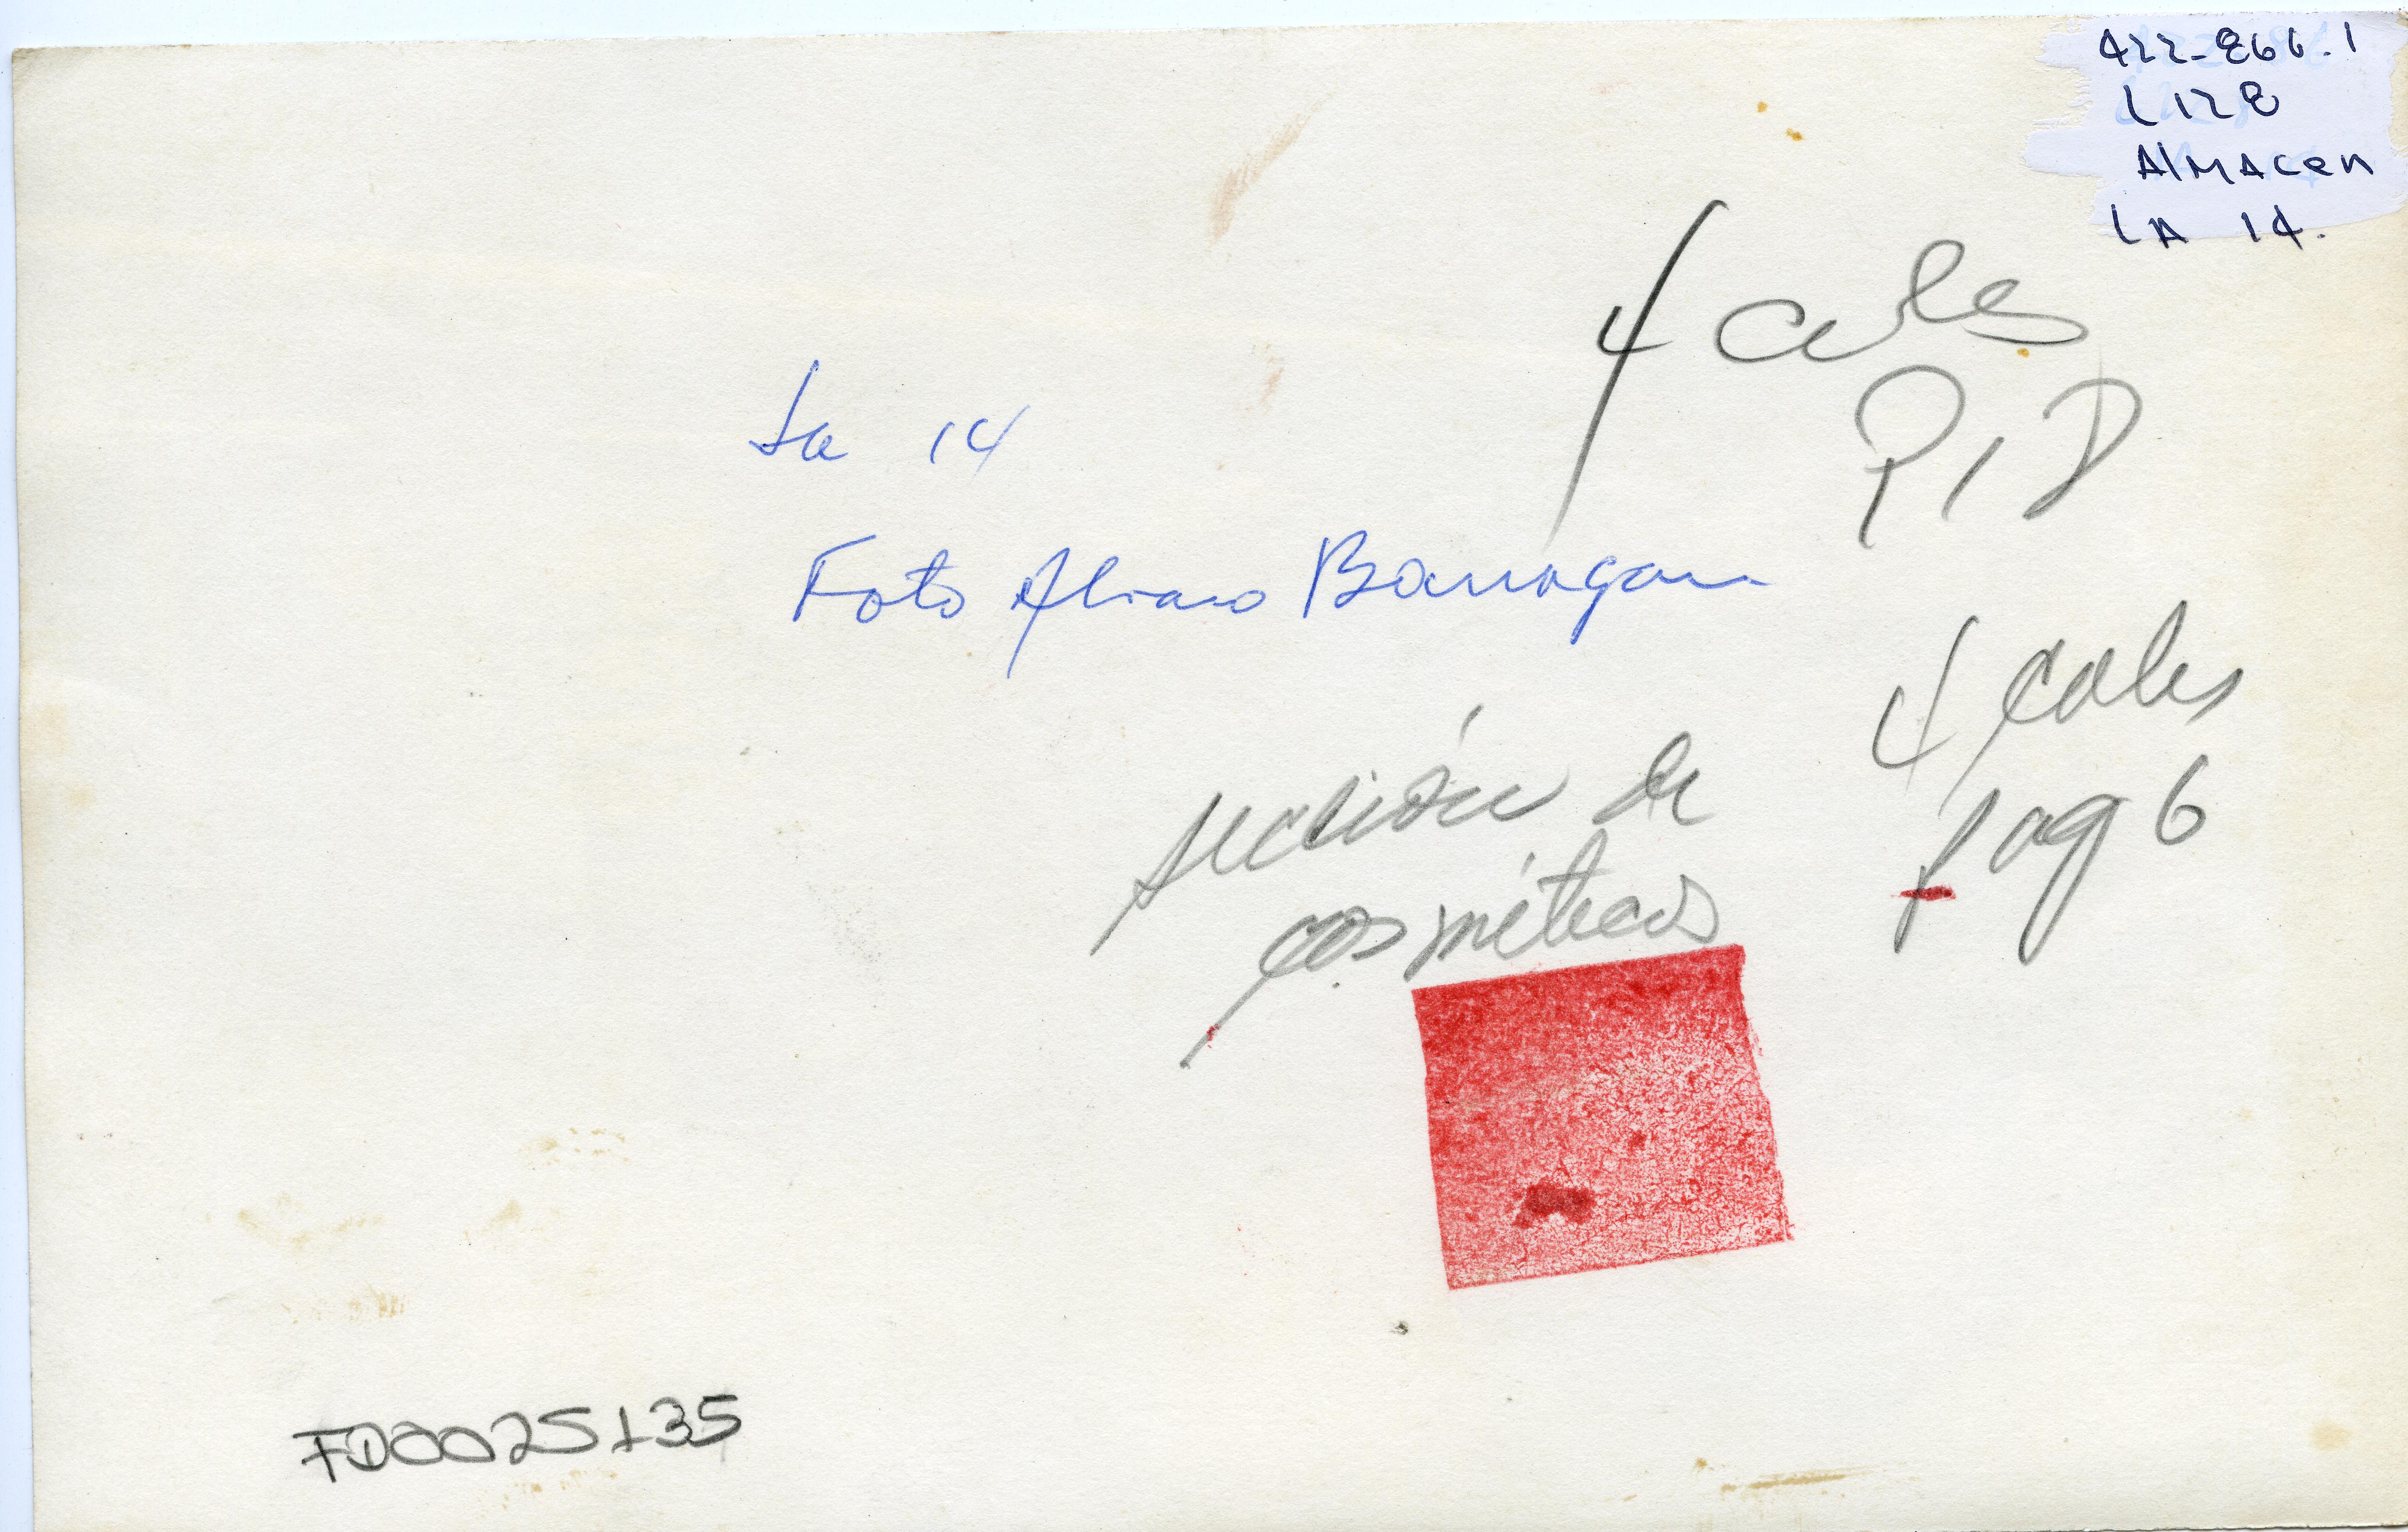 422-866.1
L128
Almacen
LA 14.
4 cols
P1D
La 14
Foto Alvaro Barragan
4 cols
pag 6
sección de
cosméticos
FD0025135